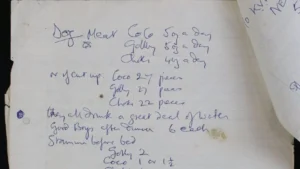 Dog Meat Coco 5 oz a day
or Golly 5 oz a day
Choki 4 oz a day
or if cut up Coco 27 pieces
Golly 27 pieces
Choki 22 pieces
they all drink a great deal of water
Good Boys after dinner 6 each
before bed
Golly 2
Coco 1 or 1½